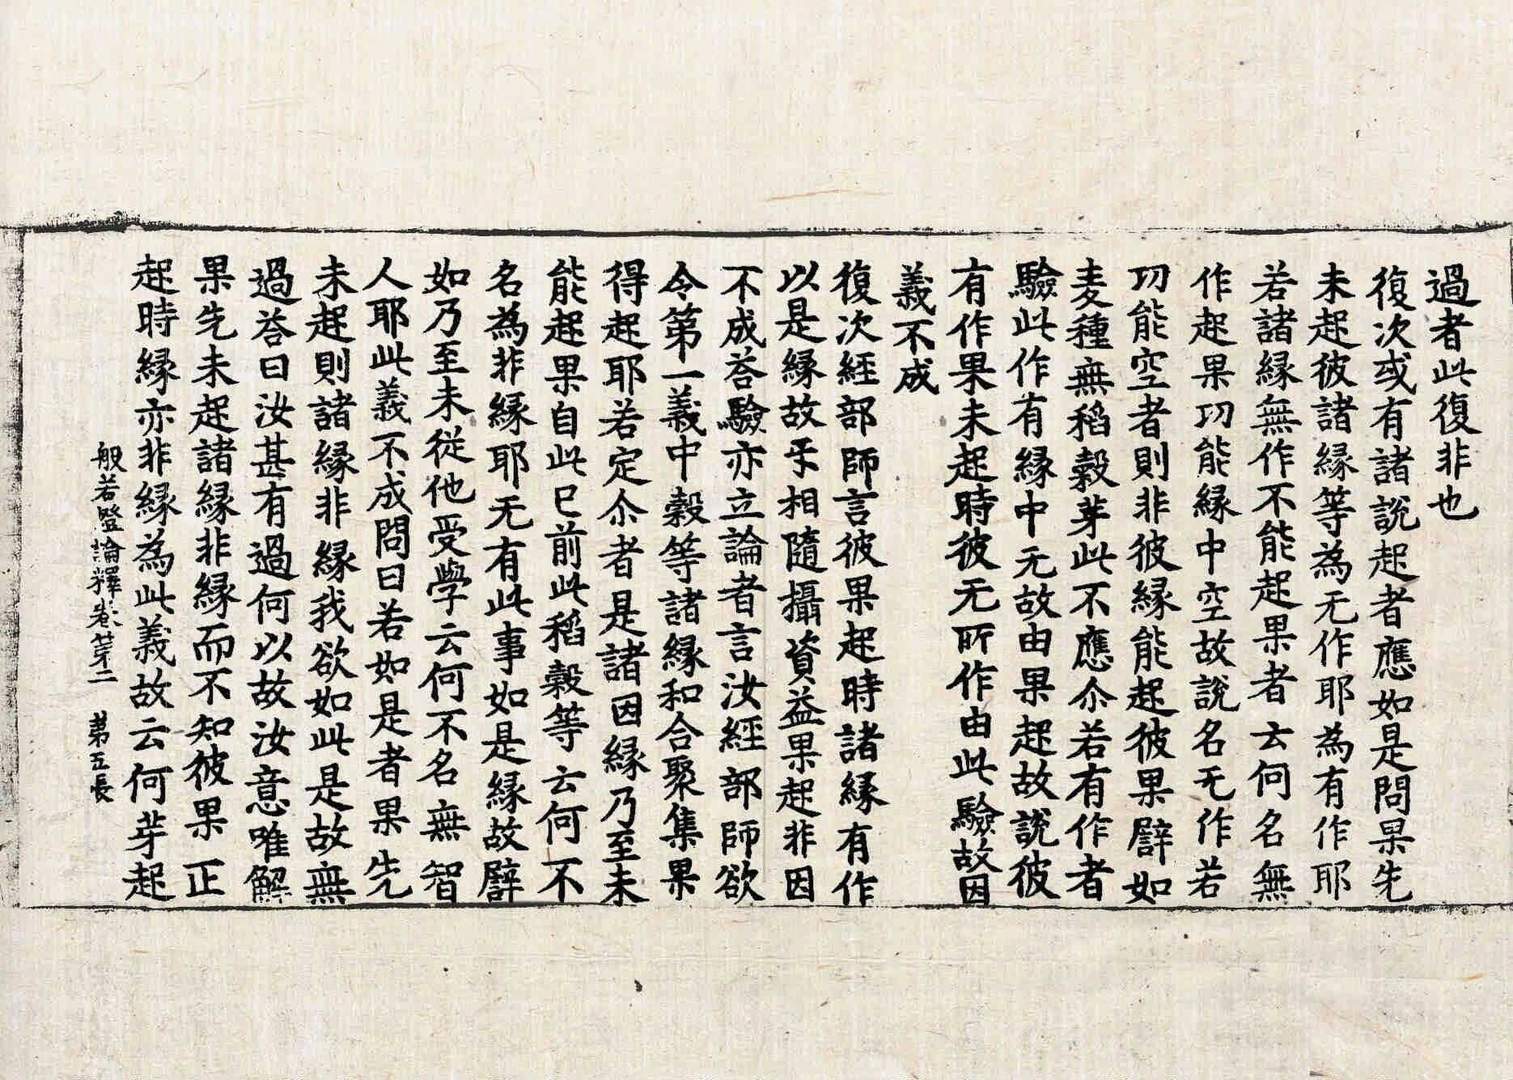 過者此復非也
復次或有諸說起者應如是問果先
未起彼諸縁等為无作耶為有作耶
若諸縁無作不能起果者云何名無
作起果功能縁中空故說名无作若
功能空者則非彼縁能起彼果譬如
麦種無稻穀芽此不應尒若有作者
驗此作有縁中无故由果起故說彼
有作果未起時彼无所作由此驗故因
義不成
復次經部師言彼果起時諸縁有作
以是縁故㸦相隨攝資益果起非因
不成荅驗亦立論者言汝經部師欲
令第一義中穀等諸縁和合聚集果
得起耶若定尒者是諸因縁乃至未
能起果自此已前此稻穀等云何不
名為非縁耶无有此事如是縁故譬
如乃至未從他受學云何不名無智
人耶此義不成問曰若如是者果先
未起則諸縁非縁我欲如此是故無
過荅曰汝甚有過何以故汝意唯解
果先未起諸縁非縁而不知彼果正
起時縁亦非縁為此義故云何芽起
般若燈論釋卷第二 第五長